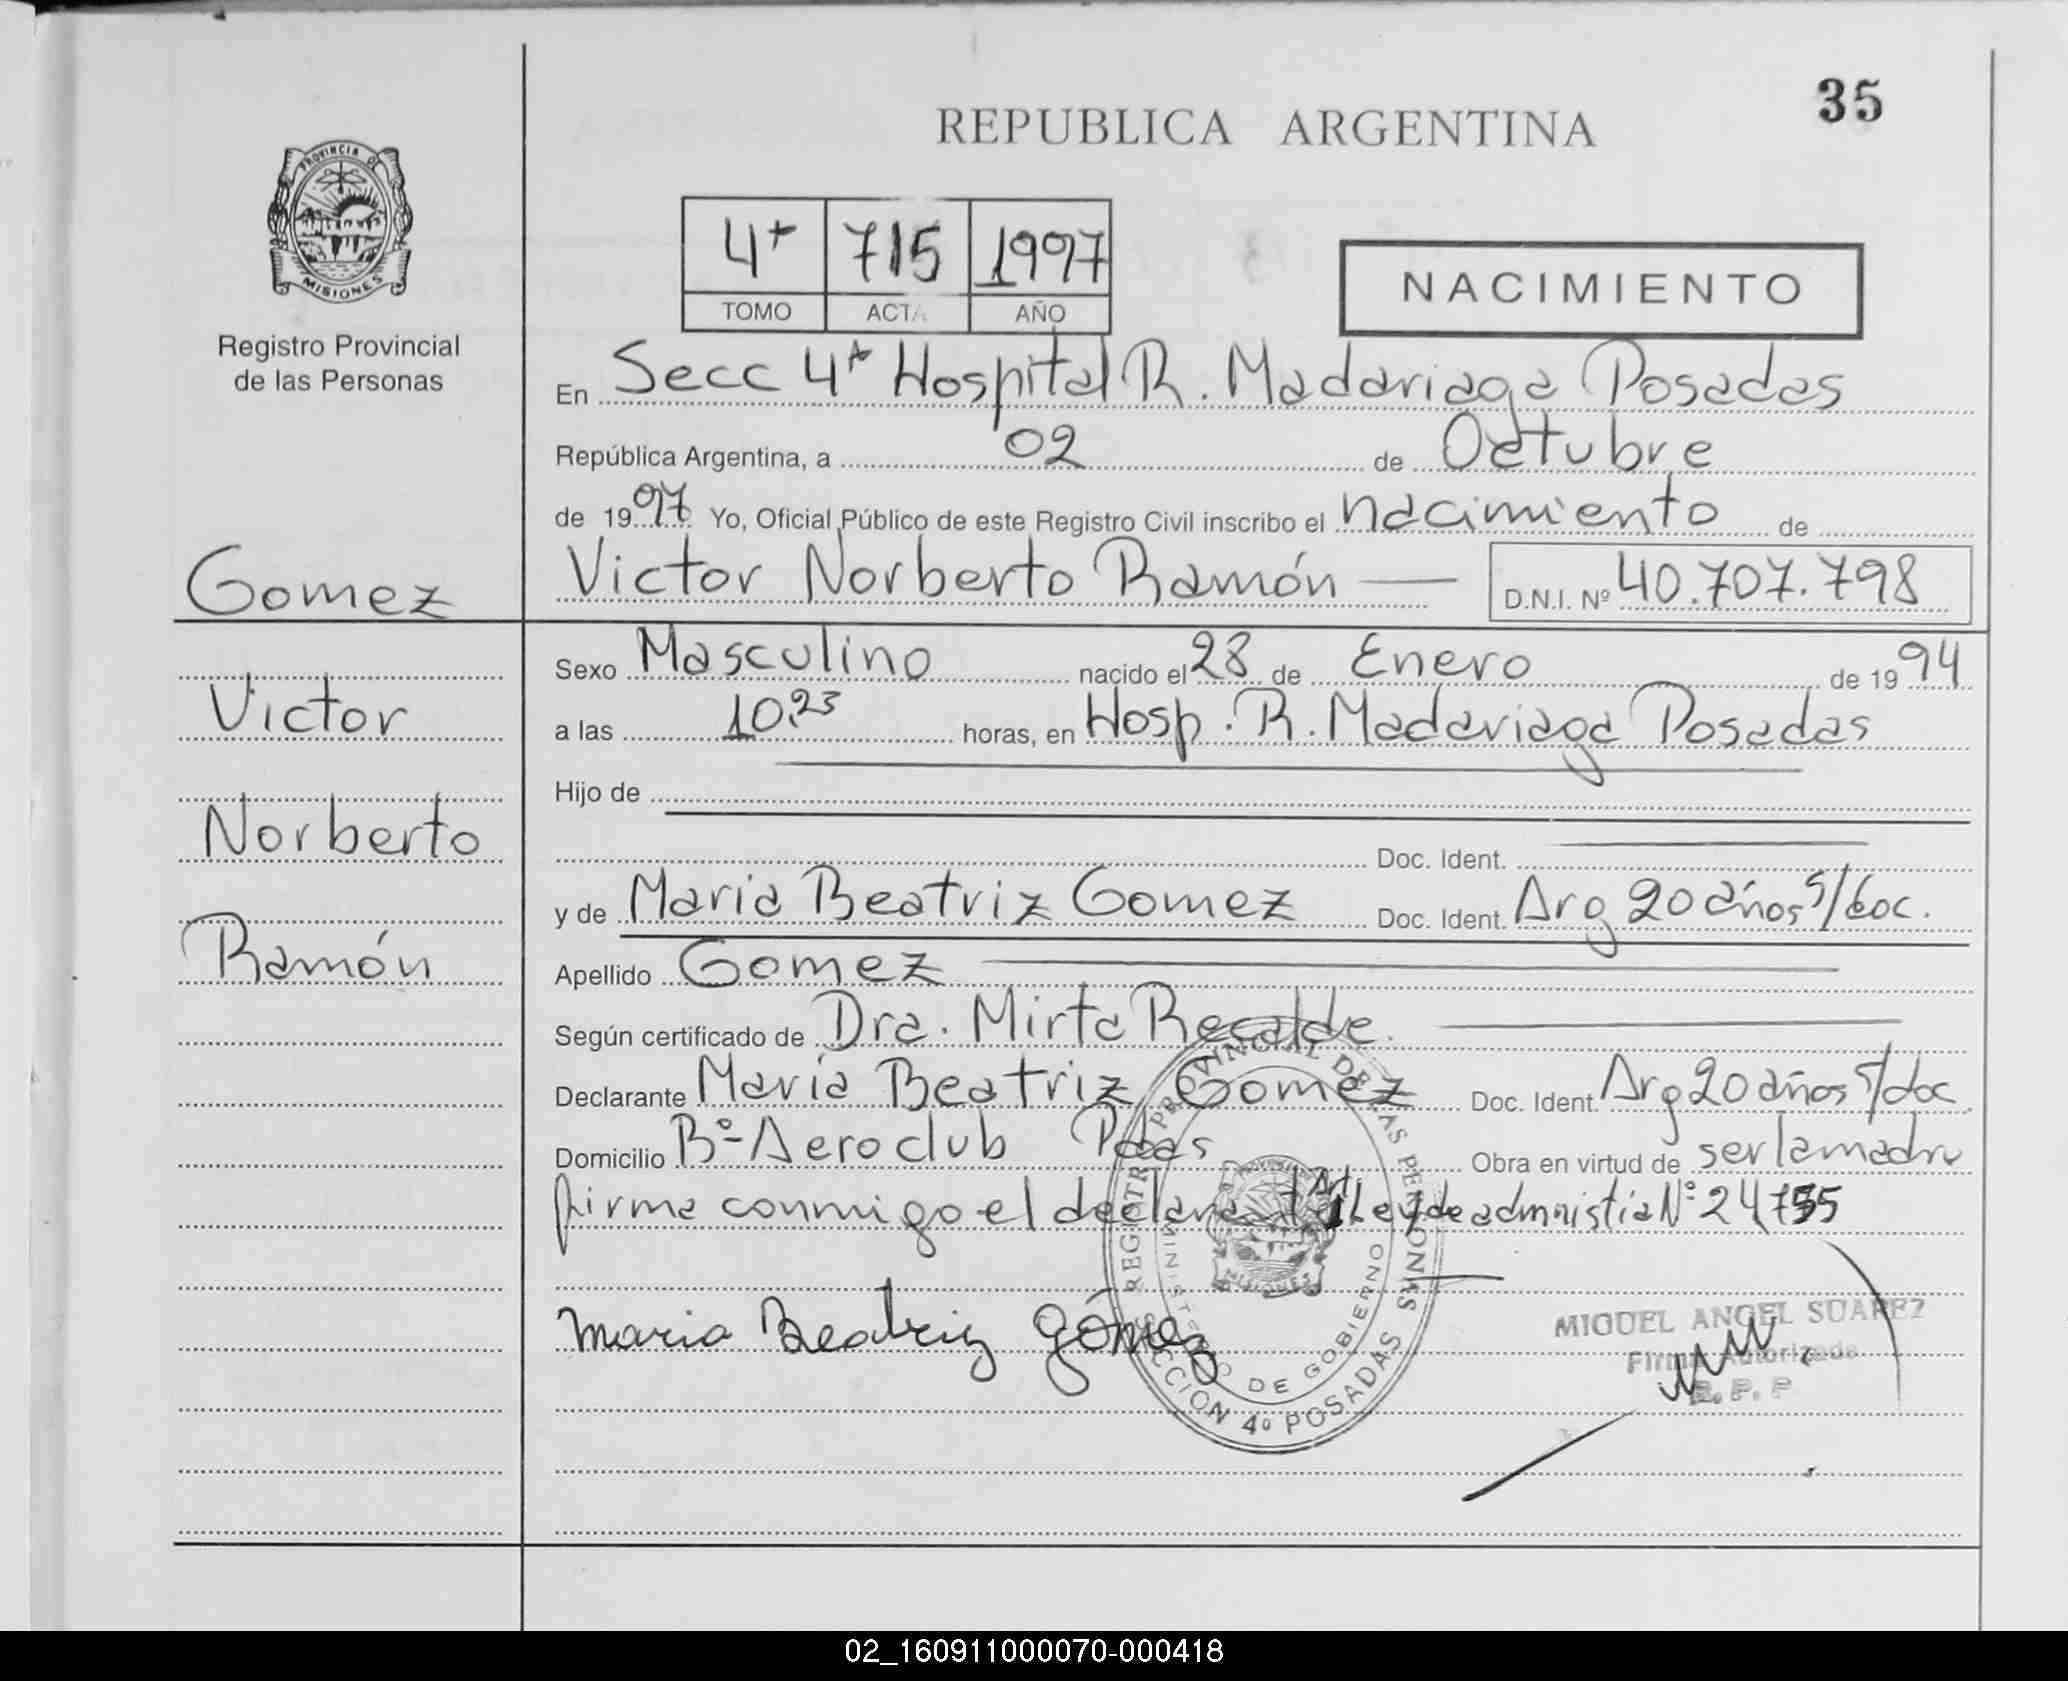 35
REPUBLICA ARGENTINA
PROVINCIA DE
MISIONES
Registro Provincial
de las Personas
4ª 715 1997
TOMO ACTA AÑO
NACIMIENTO
En Secc 4ª Hospital R. Madariaga Posadas
República Argentina, a 02 de Octubre
de 1997 Yo, Oficial Público de este Registro Civil inscribo el nacimiento de
Victor Norberto Ramón D.N.I. Nº 40.707.798
Sexo Masculino nacido el 28 de Enero de 1994
a las 10,23 horas, en Hosp. R. Madariaga Posadas
Hijo de
Doc. Ident.
y de Maria Beatriz Gomez Doc. Ident. Arg 20 años s/doc.
Apellido Gomez
Según certificado de Dra. Mirta Recalde.
Declarante Maria Beatriz Gomez Doc. Ident. Arg 20 años s/doc
Domicilio Bº Aeroclub Pdas Obra en virtud de ser la madre
firma conmigo el Art 1 Ley de admnistia Nº 24755
Maria Beatriz Gómez
MIGUEL ANGEL SUAREZ
Firma Autorizada
R. P. P
REGISTRO PROVINCIAL DE LAS PERSONAS
MINISTERIO DE GOBIERNO
MISIONES
SECCION 4º POSADAS
Gomez
Victor
Norberto
Ramón
02_160911000070-000418